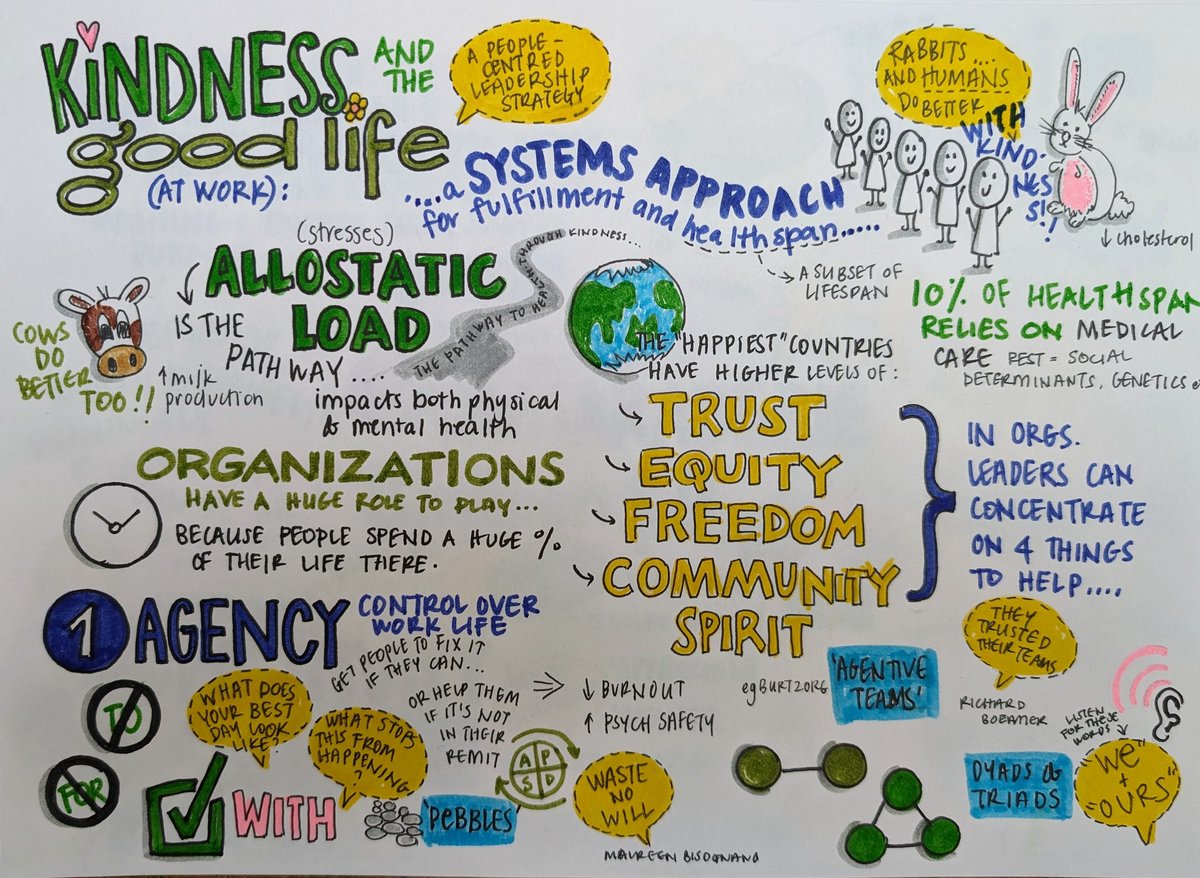 KINDNESS
AND
THE
good life
(AT WORK):
A PEOPLE-
CENTRED
LEADERSHIP
STRATEGY
....a SYSTEMS APPROACH
for fulfillment and healthspan.....
→ A SUBSET OF
LIFESPAN
RABBITS....
AND HUMANS
DO BETTER
WITH
KIND'
NES
S!!
↓ cholesterol
(stresses)
ALLOSTATIC
LOAD
IS THE
PATHWAY....
impacts both physical
& mental health
THE PATHWAY TO HEALTH THROUGH KINDNESS...
COWS
DO
BETTER
TOO!!
↑ milk
production
THE "HAPPIEST" COUNTRIES
HAVE HIGHER LEVELS OF:
TRUST
EQUITY
FREEDOM
COMMUNITY
SPIRIT
10% OF HEALTHSPAN
RELIES ON MEDICAL
CARE REST = SOCIAL
DETERMINANTS, GENETICS
IN ORGS.
LEADERS CAN
CONCENTRATE
ON 4 THINGS
TO HELP....
ORGANIZATIONS
HAVE A HUGE ROLE TO PLAY...
BECAUSE PEOPLE SPEND A HUGE %
OF THEIR LIFE THERE.
1 AGENCY
CONTROL OVER
WORK LIFE
GET PEOPLE TO FIX IT
IF THEY CAN...
OR HELP THEM
IF IT'S NOT
IN THEIR
REMIT
⇒ ↓ BURNOUT
↑ PSYCH SAFETY
TO
FOR
WITH
WHAT DOES
YOUR BEST
DAY LOOK
LIKE?
WHAT STOPS
THIS FROM
HAPPENING
?
'PEBBLES'
A P
S D
WASTE
NO
WILL
MAUREEN BISOGNANO
eg BURTZORG
'AGENTIVE
TEAMS'
THEY
TRUSTED
THEIR TEAMS
RICHARD
BOEHMER
DYADS &
TRIADS
LISTEN
FOR THESE
WORDS
"WE"
+
"OURS"